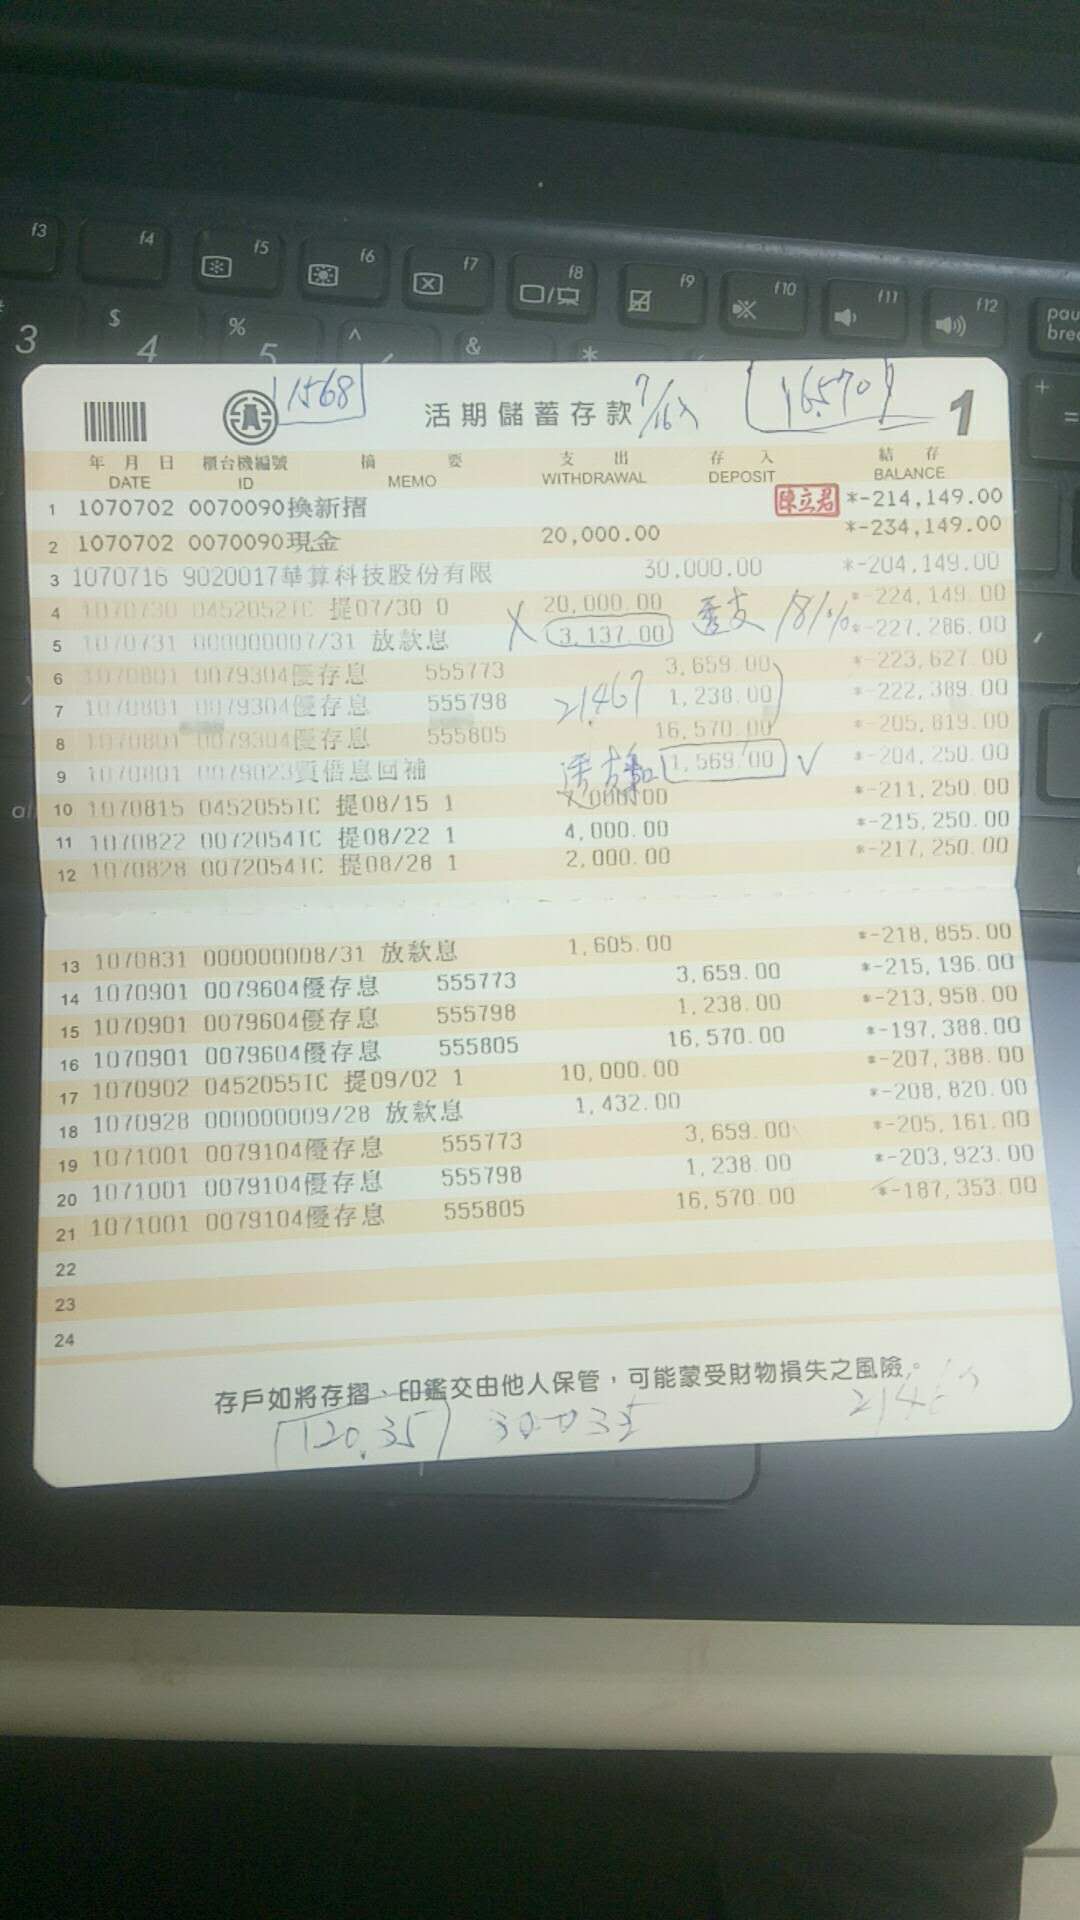 f3 f4 f5 f6 f7 f8 f9 f10 f11 f12
3 $ 4 % 5 ^ & *
1568 活期儲蓄存款 7/16入 16570 1
年月日 櫃台機編號 摘要 支出 存入 結存
DATE ID MEMO WITHDRAWAL DEPOSIT BALANCE
1 1070702 0070090換新摺 陳立君 *-214,149.00
2 1070702 0070090現金 20,000.00 *-234,149.00
3 1070716 9020017華算科技股份有限 30,000.00 *-204,149.00
4 1070730 0452052TC 提07/30 0 20,000.00 *-224,149.00
5 1070731 000000007/31 放款息 X 3,137.00 透支 *-227,286.00
6 1070801 0079304優存息 555773 3,659.00 *-223,627.00
7 1070801 0079304優存息 555798 21467 1,238.00 *-222,389.00
8 1070801 0079304優存息 555805 16,570.00 *-205,819.00
9 1070801 0079023質借息回補 1,569.00 ✓ *-204,250.00
10 1070815 0452055TC 提08/15 1 7,000.00 *-211,250.00
11 1070822 0072054TC 提08/22 1 4,000.00 *-215,250.00
12 1070828 0072054TC 提08/28 1 2,000.00 *-217,250.00
13 1070831 000000008/31 放款息 1,605.00 *-218,855.00
14 1070901 0079604優存息 555773 3,659.00 *-215,196.00
15 1070901 0079604優存息 555798 1,238.00 *-213,958.00
16 1070901 0079604優存息 555805 16,570.00 *-197,388.00
17 1070902 0452055TC 提09/02 1 10,000.00 *-207,388.00
18 1070928 000000009/28 放款息 1,432.00 *-208,820.00
19 1071001 0079104優存息 555773 3,659.00 *-205,161.00
20 1071001 0079104優存息 555798 1,238.00 *-203,923.00
21 1071001 0079104優存息 555805 16,570.00 *-187,353.00
22
23
24
存戶如將存摺、印鑑交由他人保管，可能蒙受財物損失之風險。
12035